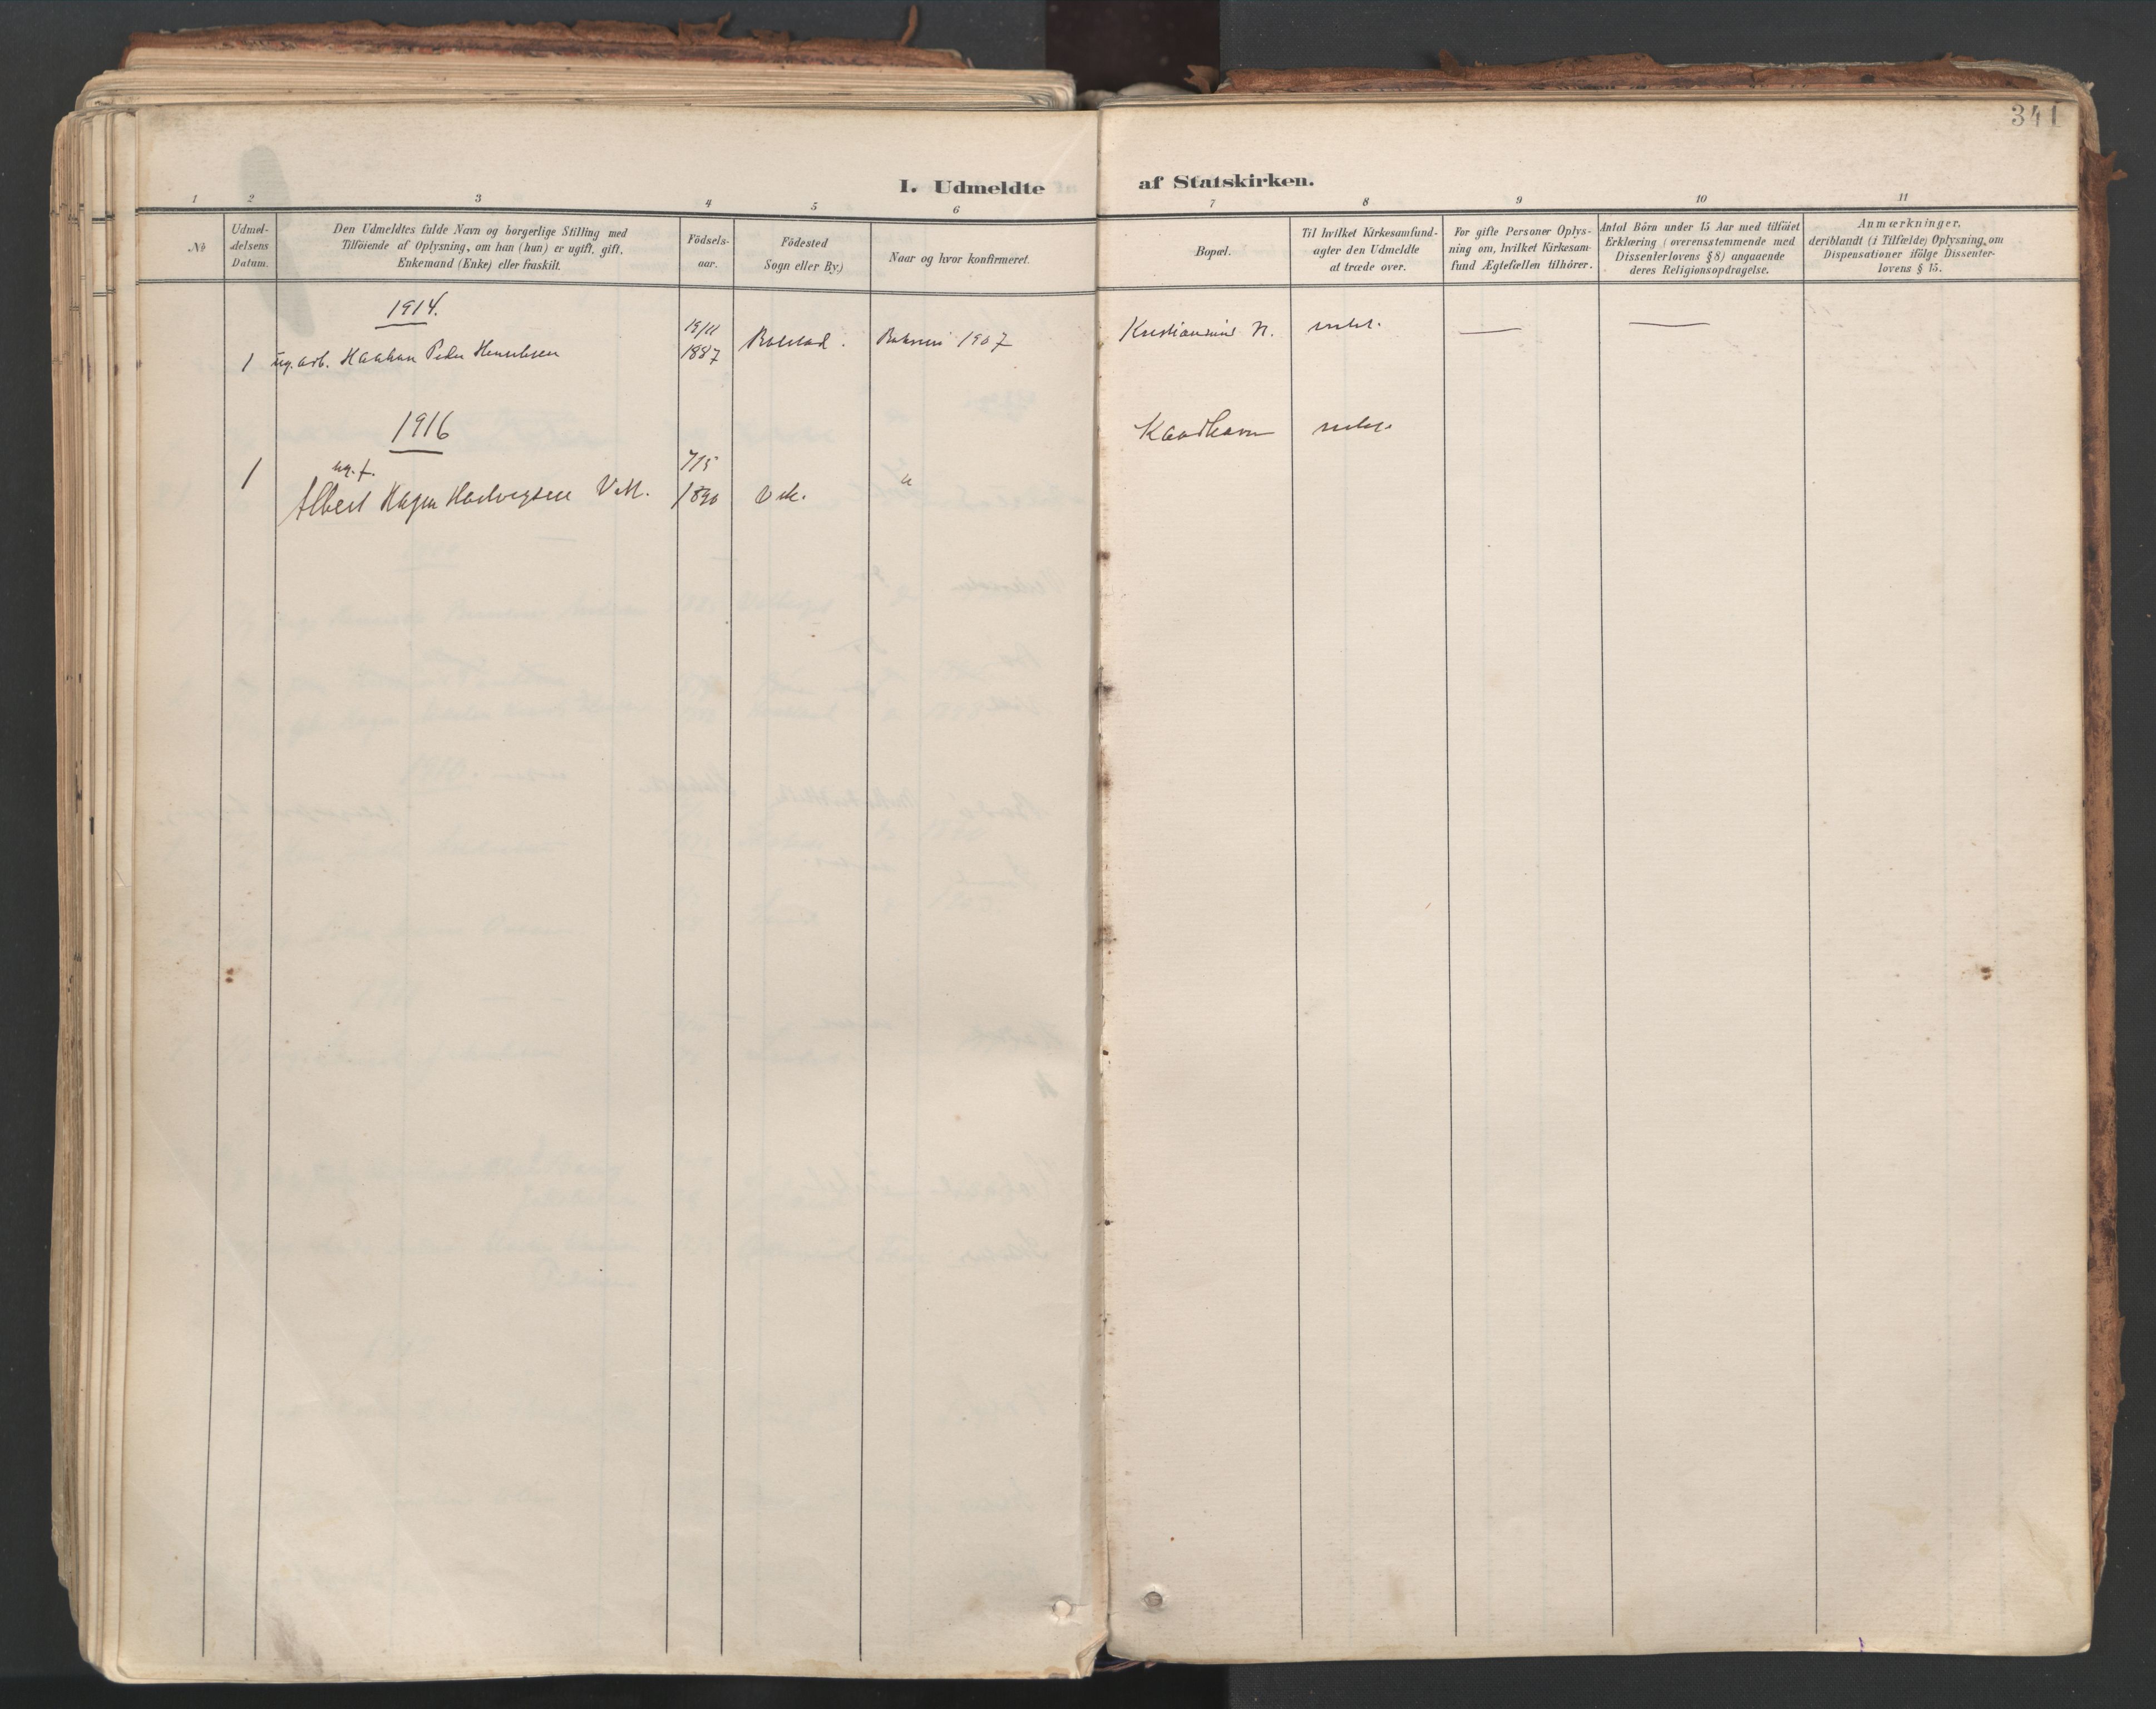 341
I. Udmeldte af Statskirken.
1 2 3 4 5 6 7 8 9 10 11
No
Udmel-
delsens
Datum.
Den Udmeldtes fulde Navn og borgerlige Stilling med
Tilföiende af Oplysning, om han (hun) er ugift, gift,
Enkemand (Enke) eller fraskilt.
Födsels-
aar.
Födested
Sogn eller By)
Naar og hvor konfirmeret.
Bopæl.
Til hvilket Kirkesamfund-
agter den Udmeldte
at træde over.
For gifte Personer Oplys-
ning om, hvilket Kirkesam-
fund Ægtefællen tilhörer.
Antal Börn under 15 Aar med tilföiet
Erklæring (overensstemmende med
Dissenterlovens § 8) angaaende
deres Religionsopdragelse.
Anmærkninger,
deriblandt (i Tilfælde) Oplysning, om
Dispensationer ifölge Dissenter-
lovens § 15.
1914.
1 ug. arb. Haakon Peder Henriksen
19/11
1887
Bolstad. 1907
Kristiansund N. — —
1916
1 ug. f.
Albert Hagen Hartvigsen Vik.
7/5
1890
Vik. "